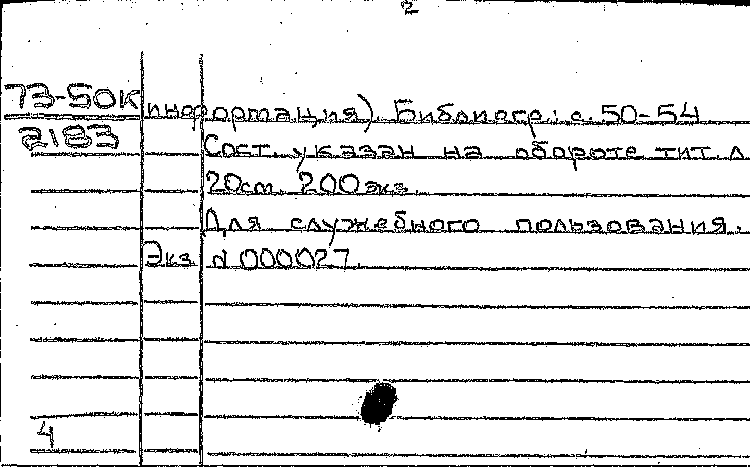 2
73-50К информация). Библиогр.: с. 50-54
2183 Сост. указан на обороте тит. л
20см. 200 экз.
Для служебного пользования.
Экз. № 000027.
4